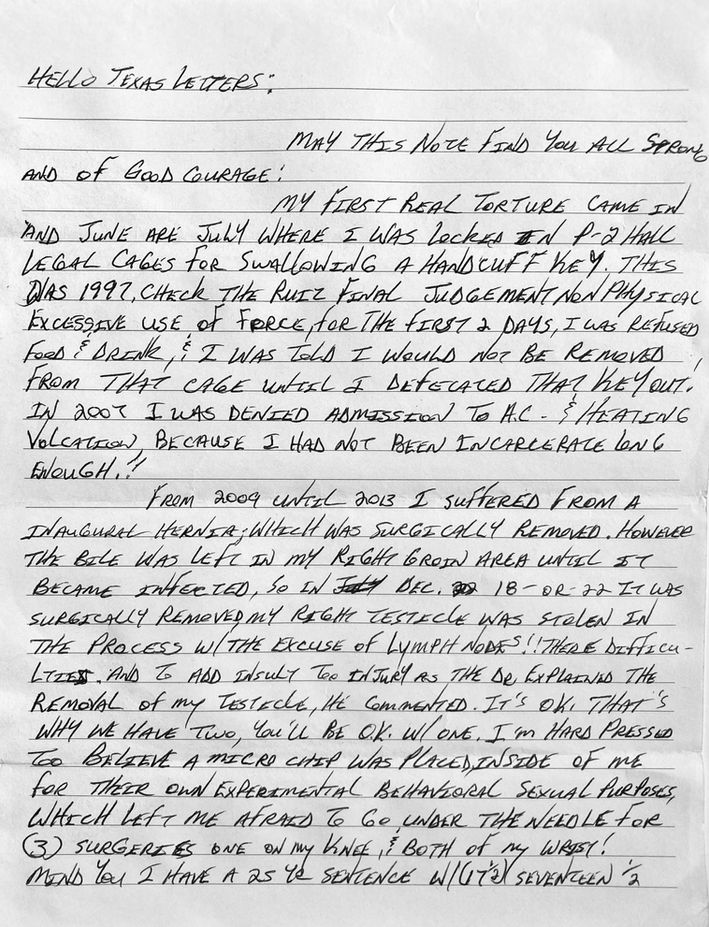 HELLO TEXAS LETTERS:
MAY THIS NOTE FIND YOU ALL STRONG
AND OF GOOD COURAGE!
MY FIRST REAL TORTURE CAME IN
AND JUNE ARE JULY WHERE I WAS LOCKED IN P-2 HALL
LEGAL CAGES FOR SWALLOWING A HANDCUFF KEY. THIS
WAS 1997, CHECK THE RUIZ FINAL JUDGEMENT NON PHYSICAL
EXCESSIVE USE OF FORCE, FOR THE FIRST 2 DAYS, I WAS REFUSED
FOOD & DRINK, & I WAS TOLD I WOULD NOT BE REMOVED
FROM THAT CAGE UNTIL I DEFECATED THAT KEY OUT!
IN 2007 I WAS DENIED ADMISSION TO A.C. & HEATING
VOLCATION, BECAUSE I HAD NOT BEEN INCARCERATE LONG
ENOUGH.!!
FROM 2009 UNTIL 2013 I SUFFERED FROM A
INAUGURAL HERNIA; WHICH WAS SURGICALLY REMOVED. HOWEVER
THE BILE WAS LEFT IN MY RIGHT GROIN AREA UNTIL IT
BECAME INFECTED, SO IN DEC. 18-OR-22 IT WAS
SURGICALLY REMOVED MY RIGHT TESTICLE WAS STOLEN IN
THE PROCESS W/THE EXCUSE OF LYMPH NODES!! THERE DIFFICU-
LTIES. AND TO ADD INSULT TOO INJURY AS THE DR. EXPLAINED THE
REMOVAL OF MY TESTICLE, HE COMMENTED. IT'S O.K. THAT'S
WHY WE HAVE TWO, YOU'LL BE O.K. W/ONE. I'M HARD PRESSED
TOO BELIEVE A MICRO CHIP WAS PLACED, INSIDE OF ME
FOR THEIR OWN EXPERIMENTAL BEHAVIORAL SEXUAL PURPOSES,
WHICH LEFT ME AFRAID TO GO UNDER THE NEEDLE FOR
(3) SURGERIES ONE ON MY KNEE, & BOTH OF MY WRIST!
MIND YOU I HAVE A 25 YR SENTENCE W/(17 1/2) SEVENTEEN 1/2